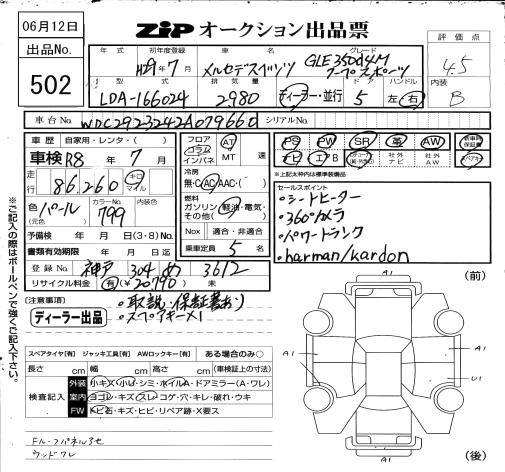 06月12日
ZIP オークション出品票
出品No.
502
評価点
4.5
内装
B
年式 初年度登録 車名 グレード
H29年7月 メルセデスベンツ GLE350d4M クーペスポーツ
型式 排気量 ドア ハンドル
LDA-166024 2980 ディーラー・並行 5 左・右
車台No. WDC2923242A079660 シリアルNo.
車歴 自家用・レンタ・( )
車検 R8年7月
走行 86,260 キロ マイル
色 パール (元色) カラーNo. 799 内装色
予備検 年 月 日(3・8)No.
書類有効期限 年 月 日迄
登録No. 神戸 304 め 3612
リサイクル料金 有(¥20,790) 未
フロア コラム インパネ AT MT 速
冷房 無・C・AC・AAC・( )
燃料 ガソリン・軽油・電気・その他( )
Nox 適合・非適合
乗車定員 5 名
PS PW SR 革 AW 新車時保証書
ナビ エアB 社外ナビ 社外AW スペアキー
※上記太枠内は標準装備品
セールスポイント
・シートヒーター
・360°カメラ
・パワートランク
・harman/kardon
(注意事項) ・取説・保証書あり
・スペアキー×1
ディーラー出品
※ご記入の際はボールペンで強くご記入下さい。
スペアタイヤ[有] ジャッキ工具[有] AWロックキー[有] ある場合のみ○
長さ cm 幅 cm 高さ cm (車検証上の寸法)
検査記入
外装 小キズ・小凹・シミ・ホイルA・ドアミラー(A・ワレ)
室内 ヨゴレ・キズ・スレ・コゲ・穴・キレ・破れ・ウキ
FW トビ石・キズ・ヒビ・リペア跡・X要ス
(前)
A1
A1
A1
U1
A1
(後)